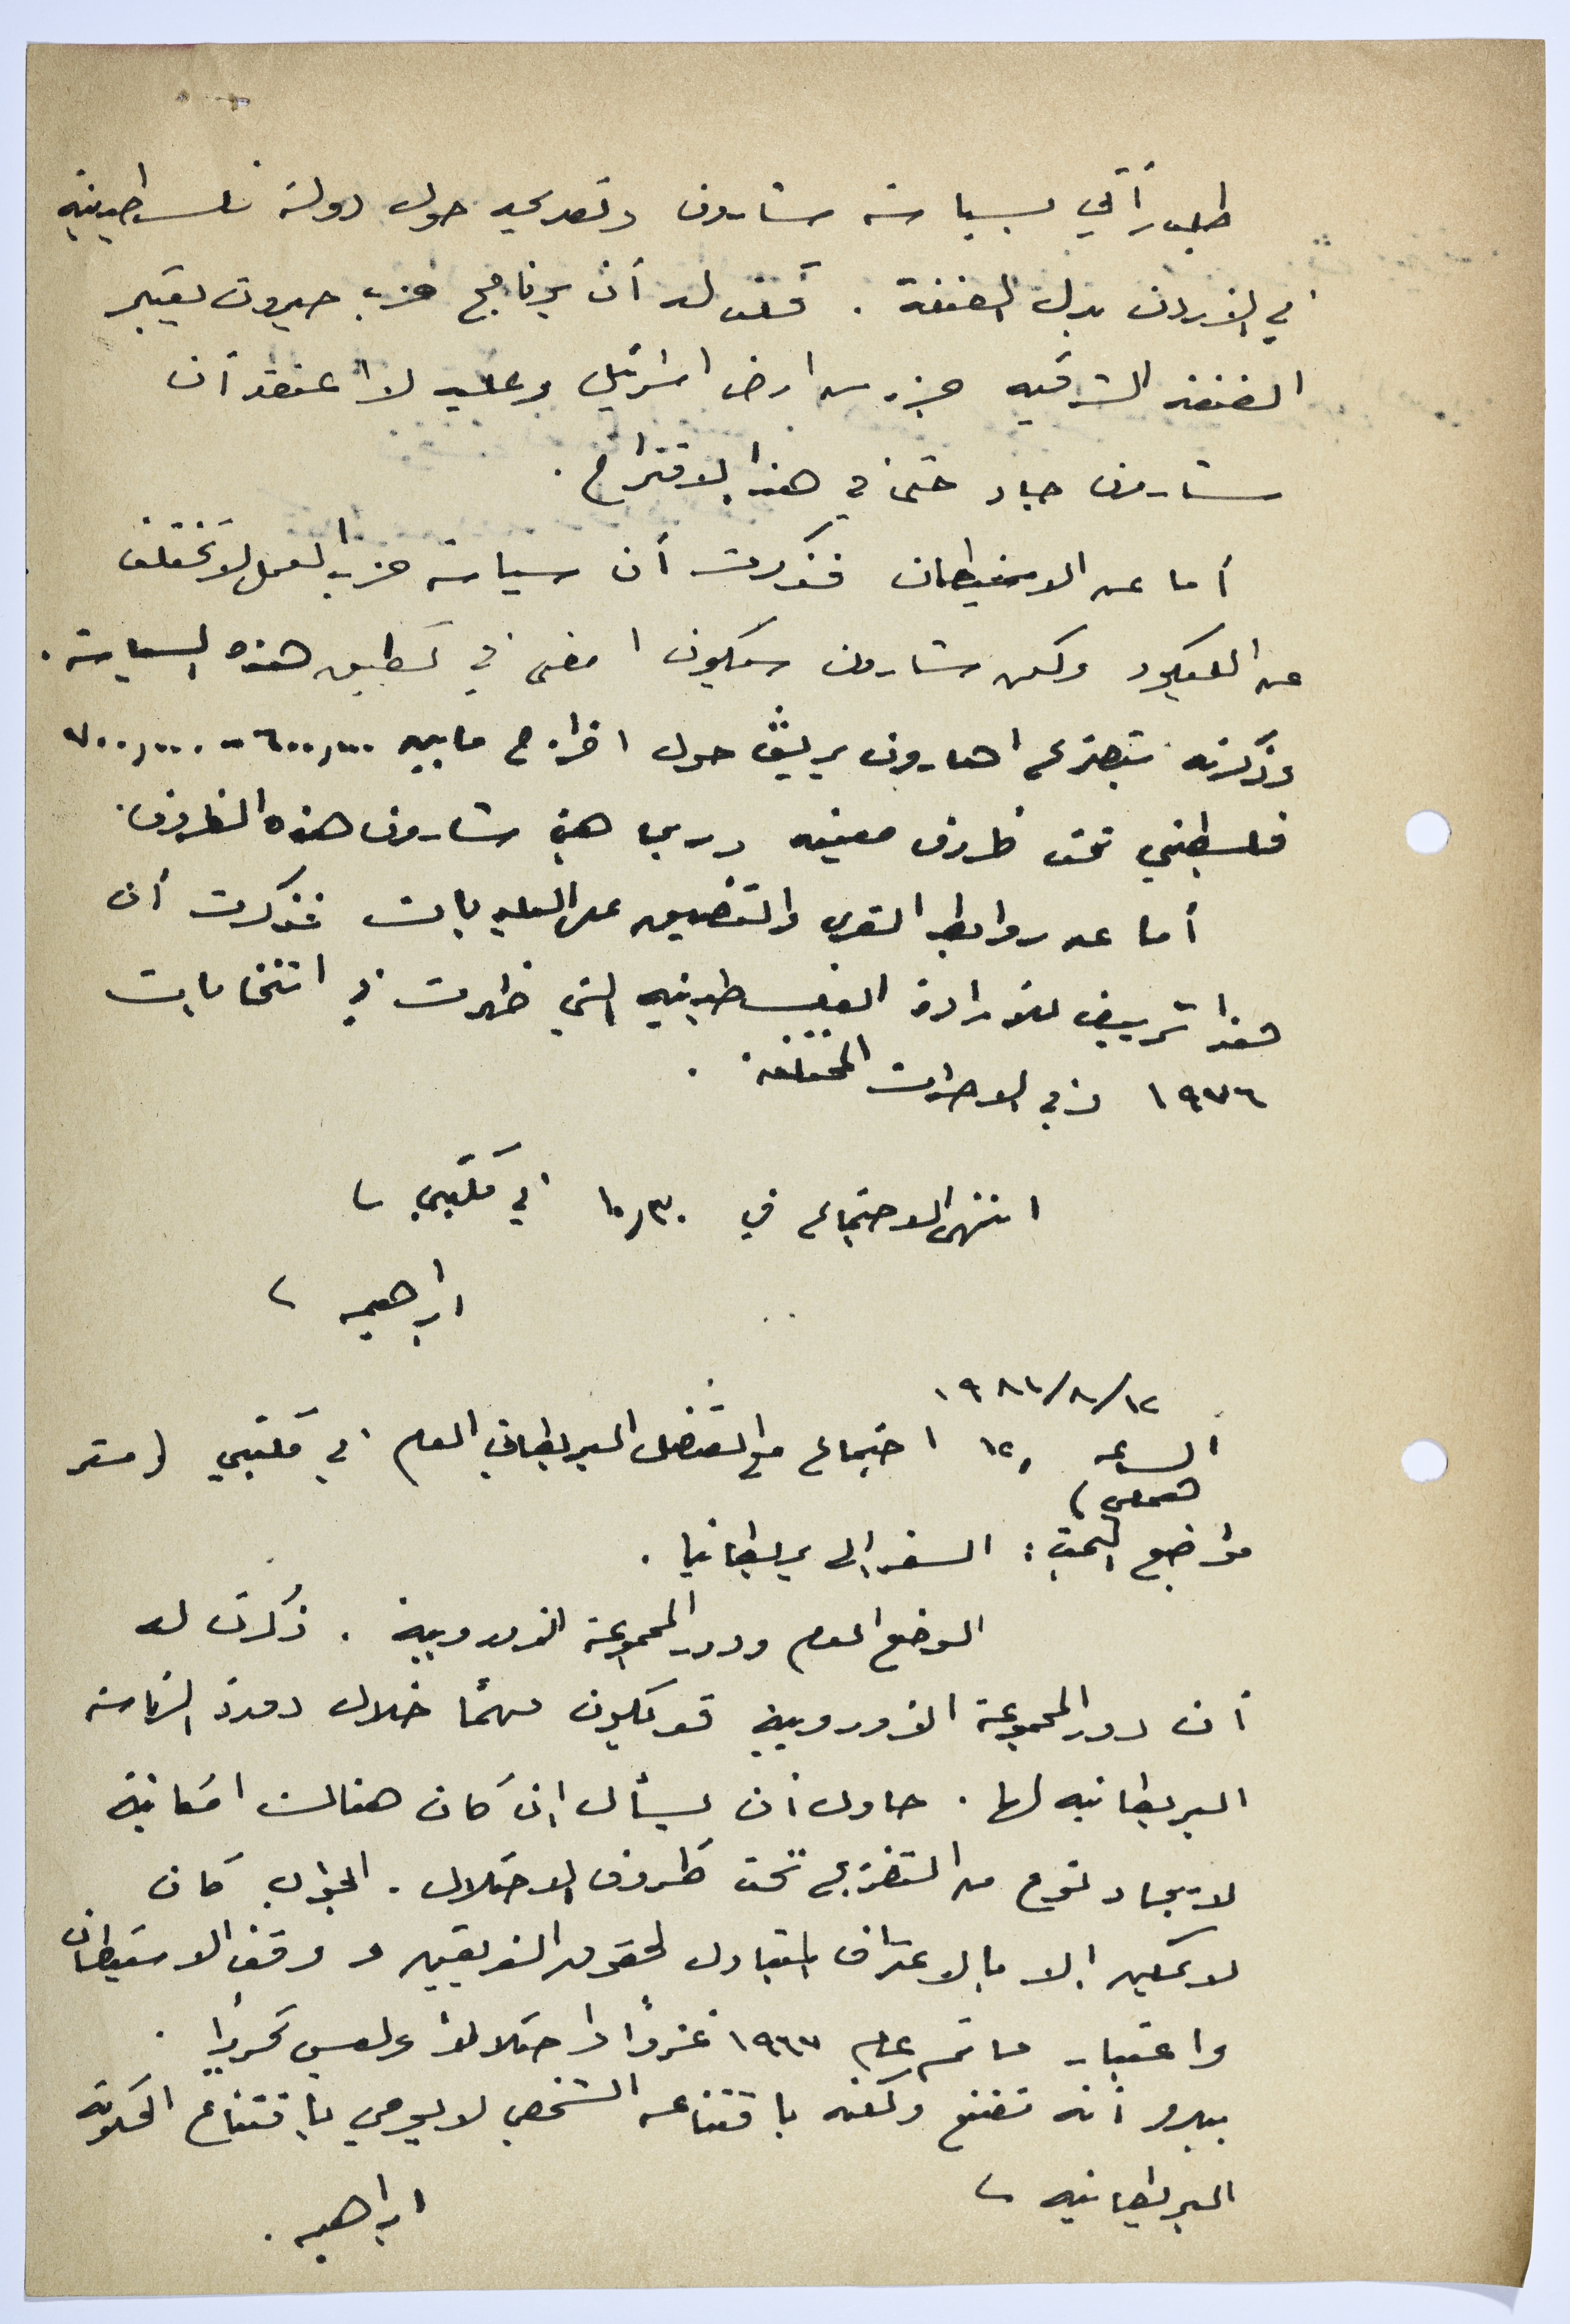 طلب رأيي بسياسة شارون وتصريحه حول دولة فلسطينية
في الأردن بدل الضفة . قلت له أن برنامج حزب حيروت يعتبر
الضفة الشرقيه جزء من ارض اسرائيل وعليه لا اعتقد أن
شارون جاد حتى في هذا الاقتراح .
أما عن الاستيطان فذكرت أن سياسة حزب العمل لا تختلف
عن الليكود ولكن شارون سيكون امضى في تطبيق هذه السياسة .
وذكرته بتصريح اهارون ياريف حول اخراج ما بين ٦٠٠,٠٠٠ - ٧٠٠,٠٠٠
فلسطيني تحت ظروف معينه وربما هيئ شارون هذه الظروف .
أما عن روابط القرى والتضييق على البلديات فذكرت أن
هذا تزييف للارادة الفلسطينيه التي ظهرت في انتخابات
١٩٧٦ وفي الاضرابات المختلفة .
انتهى الاجتماع في ١٠,٣٠ في مكتبي
ابراهيم
١٩٨١/٨/١٢
الساعه ١٢, اجتماع مع القنصل البريطاني العام في مكتبي ( مستر
مواضيع البحث : السفر الى بريطانيا .
الوضع العام ودور المجموعة الاوروبية . ذكرت له
أن دور المجموعة الاوروبية قد يكون مهمًا خلال دورة الرئاسة
البريطانيه لها . حاول أن يسأل ان كان هنالك امكانية
لايجاد نوع من التفاهم تحت ظروف الاحتلال . الجواب كان
لا يمكن إلا بالاعتراف المتبادل لحقوق الفريقين و وقف الاستيطان
واعتبار ما تم عام ١٩٦٧ غزوًا واحتلالا وليس تحريرًا .
يبدو أنه مقتنع ولكنه باقتناعه الشخصي لا يوحي باقتناع الحكومة
البريطانيه
ابراهيم .